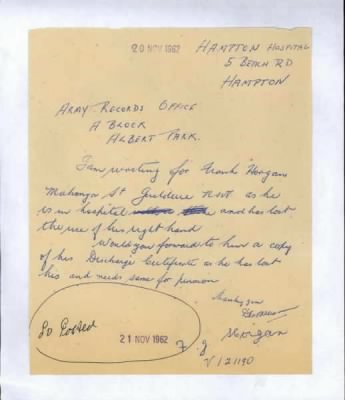 20 NOV 1962
HAMPTON HOSPITAL
5 BEACH RD
HAMPTON
ARMY RECORDS OFFICE
A BLOCK
ALBERT PARK.
I am writing for Frank Horgan
St N.S.W as he
is in hospital and has lost
the use of his right hand
Would you forward to him a copy
of his Discharge Certificate as he has lost
his and needs same for pension
Thanking you
F. J Horgan
V/21190
LD Posted
21 NOV 1962